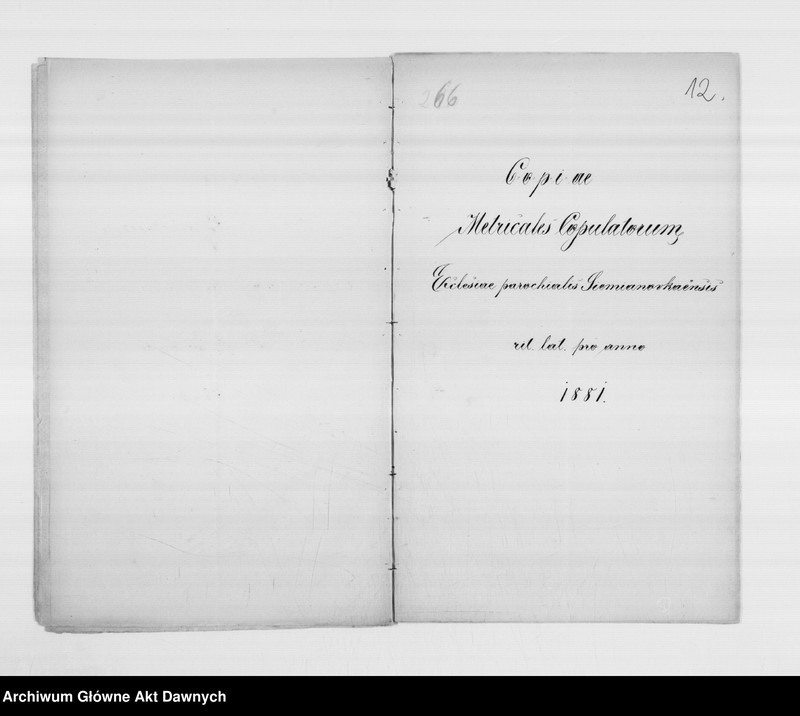 266
12.
Copiae
Metricales Copulatorum
Ecclesiae parochialis Siemianovkaënsis
rit. lat. pro anno
1881.
Archiwum Główne Akt Dawnych